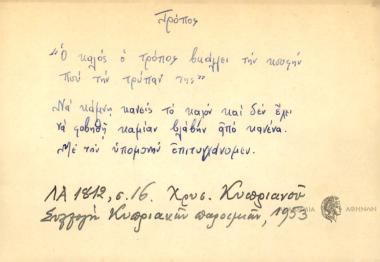 Τρόπος
"Ὁ καλός ὁ τρόπος βκάλλει τήν κουφήν
πού τήν τρύπαν της"
Νά κάμνῃ κανείς τό καλόν καί δέν ἔχει
νά φοβηθῇ καμίαν βλάβην ἀπό κανένα.
Μέ τήν ὑπομονήν ἐπιτυγχάνομεν.
ΛΑ 1812, σ. 16. Χρυσ. Κυπριανοῦ
Συλλογή Κυπριακῶν παροιμιῶν, 1953
ΑΘΗΝΩΝ